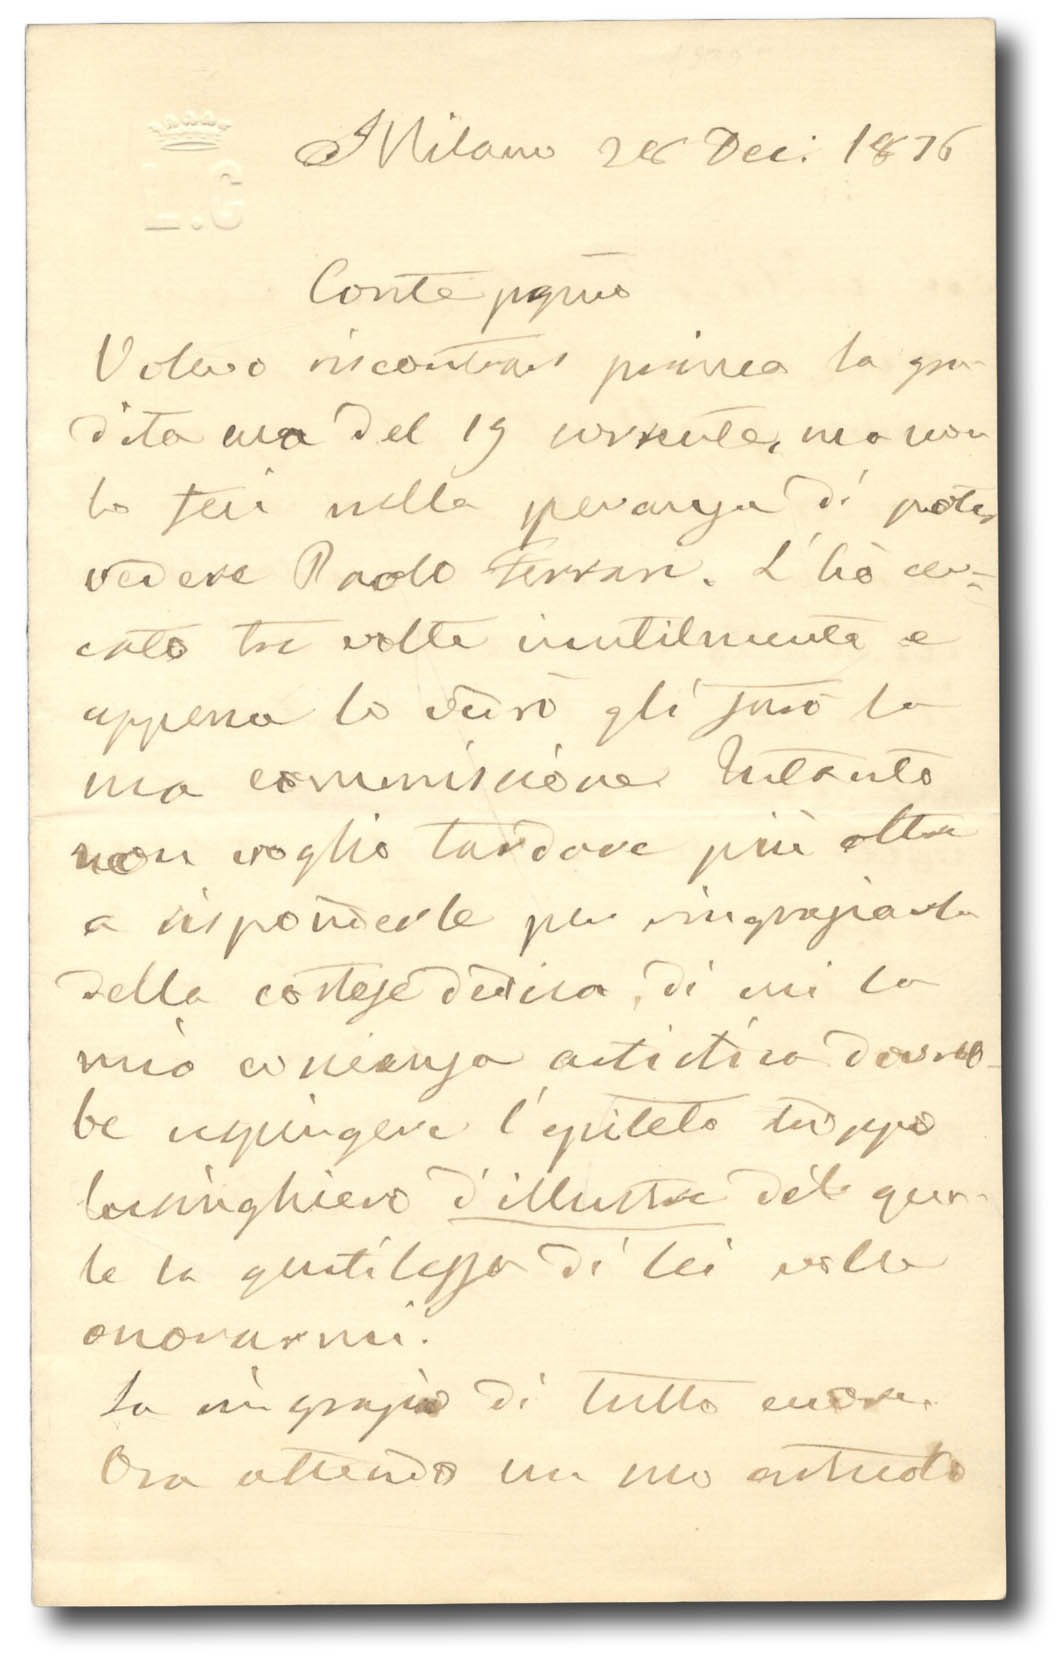 L.G
Milano 28 Dec. 1876
Conte pgmo
Volevo riscontrar prima la gra-
dita sua del 19 corrente, ma non
lo feci nella speranza di poter
vedere Paolo Ferrari. L'hò cer-
cato tre volte inutilmente e
appena lo vedrò gli farò la
sua commissione. Intanto
non voglio tardare più oltre
a risponderle per ringraziarla
della cortese dedica, di cui la
mia coscienza artistica dovreb-
be respingere l'epiteto troppo
lusinghiero d'illustre del qua-
le la gentilezza di lei volle
onorarmi.
La ringrazio di tutto cuore.
Ora attendo un suo